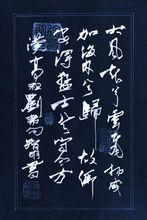 大風起兮雲飛揚威
加海内兮歸故鄉
安得猛士兮守四方
漢高祖劉邦句